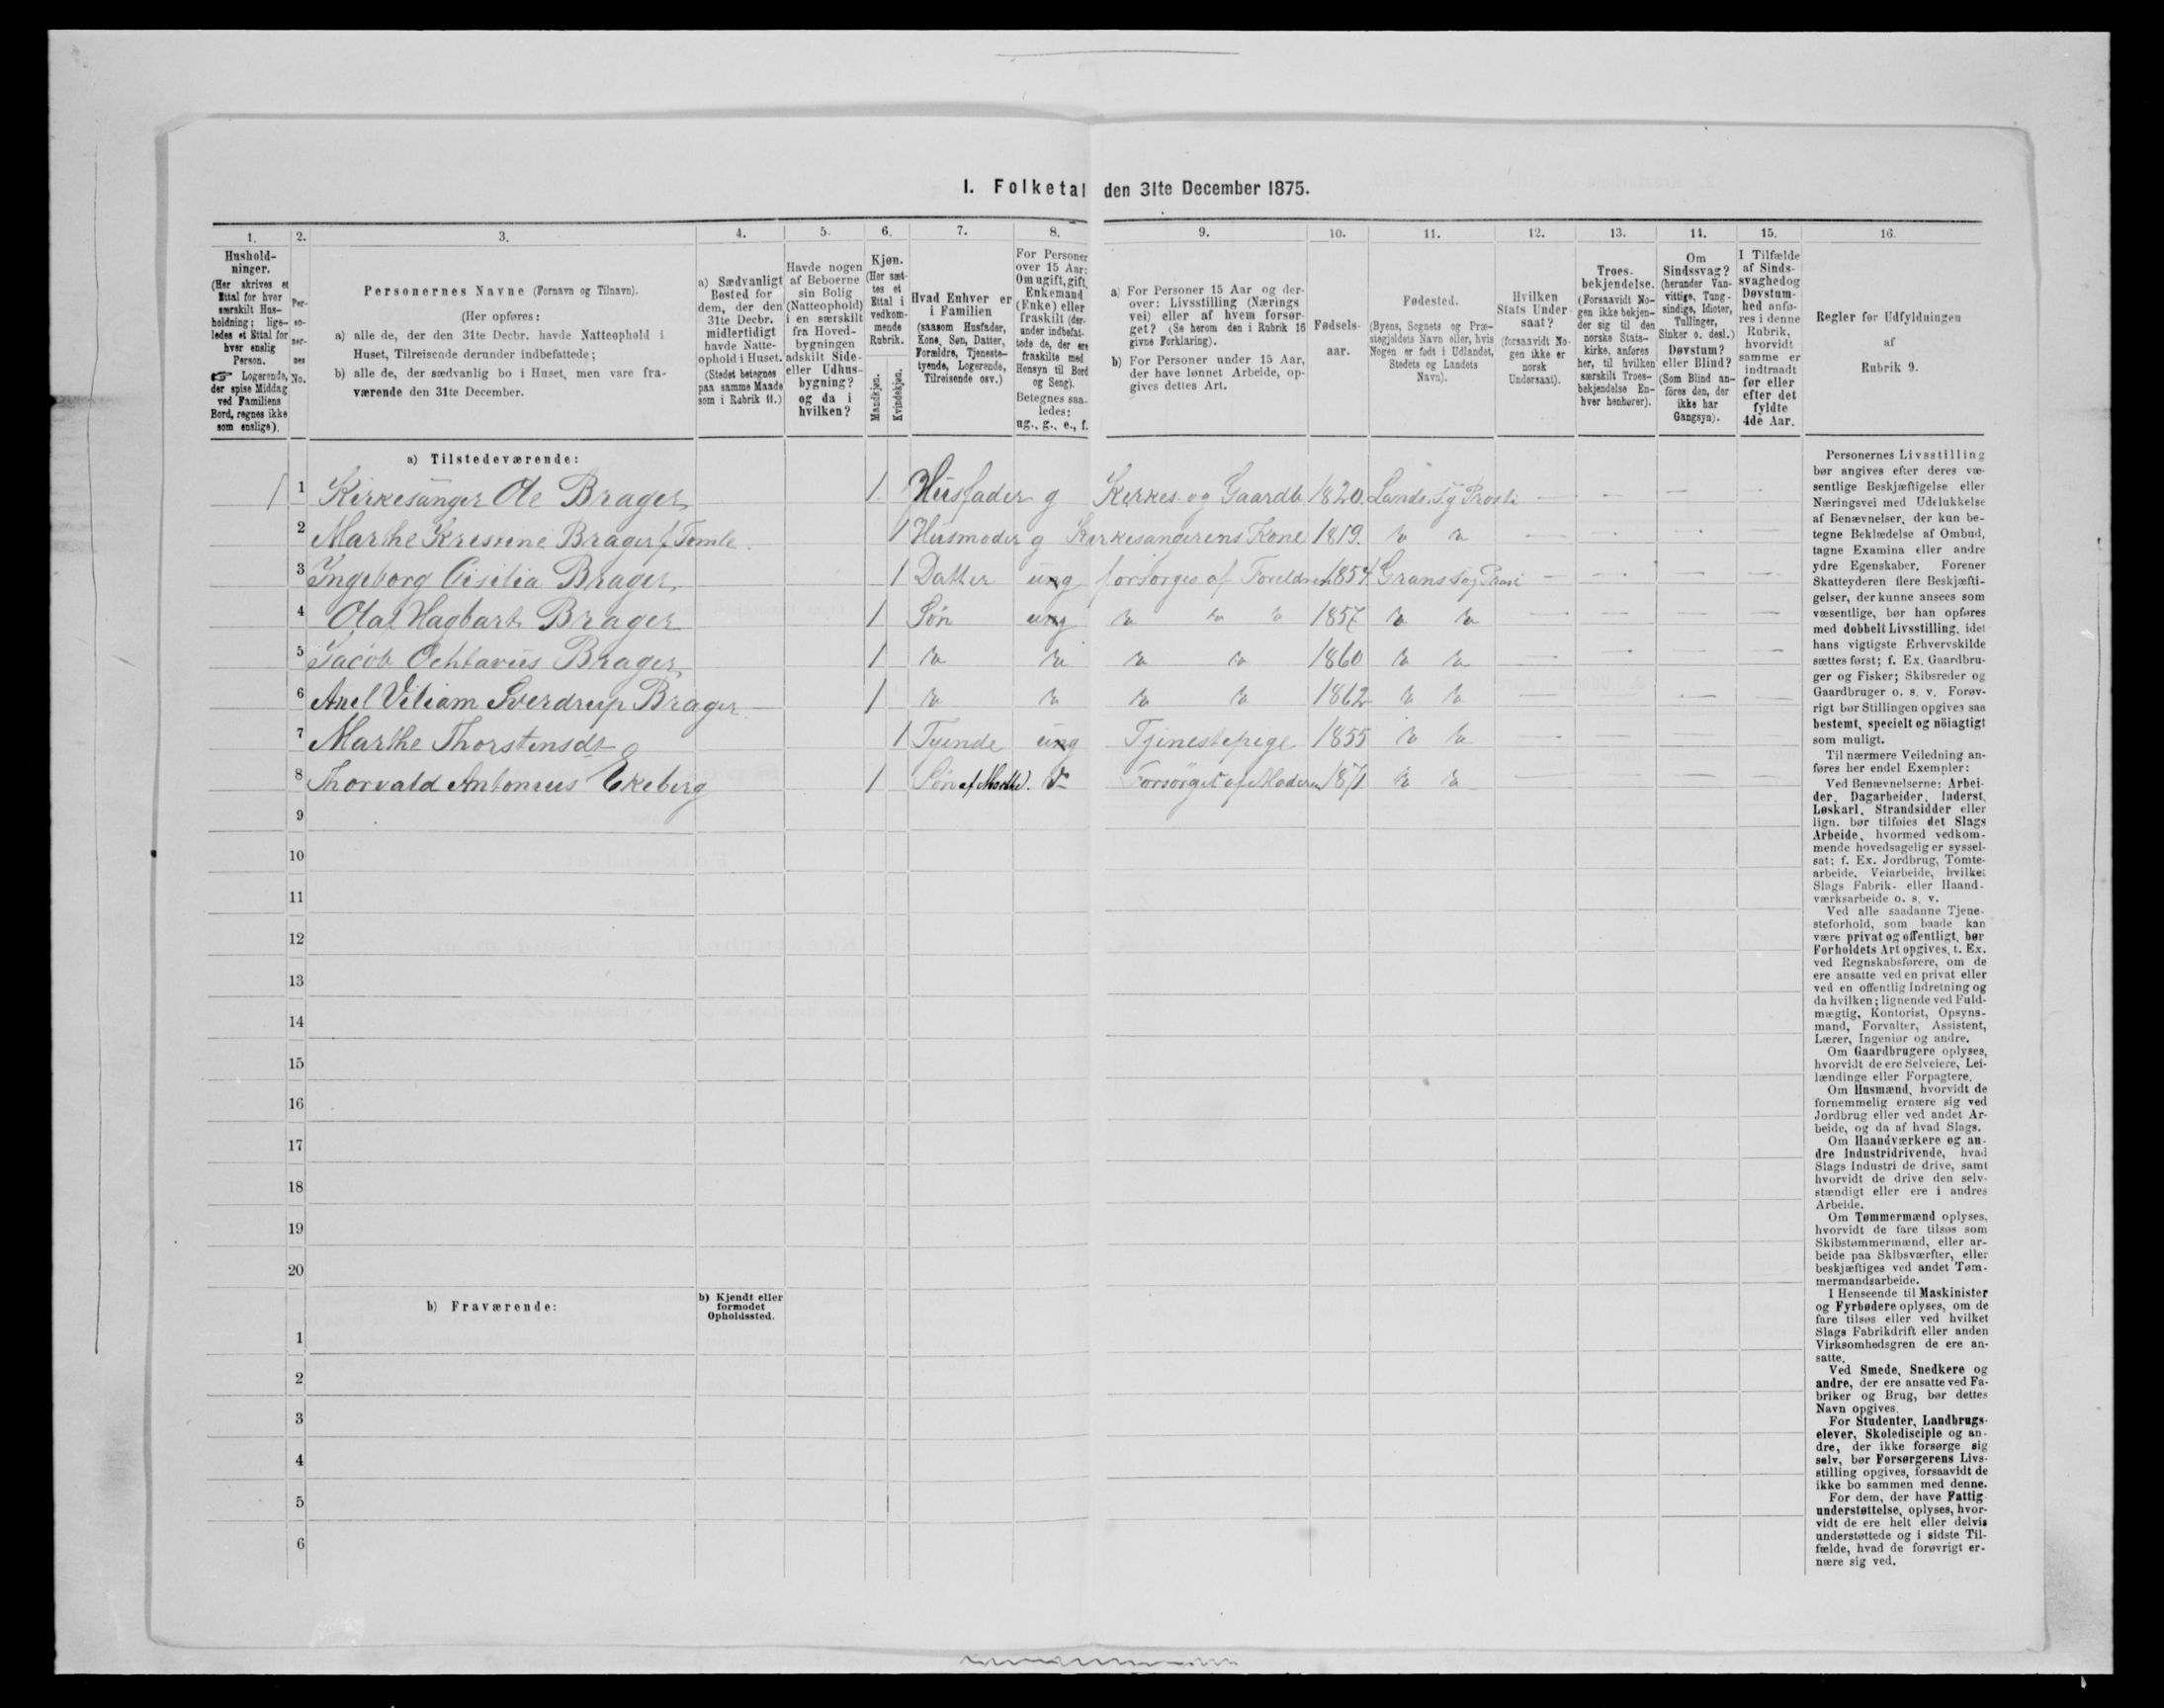 I. Folketal den 31te December 1875.
1.
Hushold-
ninger.
(Her skrives et
Ettal for hver
særskilt Hus-
holdning; lige-
ledes et Ettal for
hver enslig
Person.
☞ Logerende,
der spise Middag
ved Familiens
Bord, regnes ikke
som enslige).
2.
Per-
so-
ner-
nes
No.
3.
Personernes Navne (Fornavn og Tilnavn).
(Her opføres:
a) alle de, der den 31te Decbr. havde Natteophold i
Huset, Tilreisende derunder indbefattede;
b) alle de, der sædvanlig bo i Huset, men vare fra-
værende den 31te December.
4.
a) Sædvanligt
Bosted for
dem, der den
31te Decbr.
midlertidigt
havde Natte-
ophold i Huset.
(Stedet betegnes
paa samme Maade
som i Rubrik 11.)
5.
Havde nogen
af Beboerne
sin Bolig
(Natteophold)
i en særskilt
fra Hoved-
bygningen
adskilt Side-
eller Udhus-
bygning?
og da i
hvilken?
6.
Kjøn.
(Her sæt-
tes et
Ettal i
vedkom-
mende
Rubrik.
Mandkjøn.
Kvindekjøn.
7.
Hvad Enhver er
i Familien
(saasom Husfader,
Kone, Søn, Datter,
Forældre, Tjeneste-
tyende, Logerende,
Tilreisende osv.)
8.
For Personer
over 15 Aar:
Om ugift, gift,
Enkemand
(Enke) eller
fraskilt (der-
under indbefat-
tede de, der ere
fraskilte med
Hensyn til Bord
og Seng).
Betegnes saa-
ledes:
ug., g., e., f.
9.
a) For Personer 15 Aar og der-
over: Livsstilling (Nærings
vei) eller af hvem forsør-
get? (Se herom den i Rubrik 16
givne Forklaring).
b) For Personer under 15 Aar,
der have lønnet Arbeide, op-
gives dettes Art.
10.
Fødsels-
aar.
11.
Fødested.
(Byens, Sognets og Præ-
stegjeldets Navn eller, hvis
Nogen er født i Udlandet,
Stedets og Landets
Navn).
12.
Hvilken
Stats Under
saat?
(forsaavidt No-
gen ikke er
norsk
Undersaat).
13.
Troes-
bekjendelse.
(Forsaavidt No-
gen ikke bekjen-
der sig til den
norske Stats-
kirke, anføres
her, til hvilken
særskilt Troes-
bekjendelse En-
hver henhører).
14.
Om
Sindssvag?
(herunder Van-
vittige, Tung-
sindige, Idioter,
Tullinger,
Sinker o. desl.)
Døvstum?
eller Blind?
(Som Blind an-
føres den, der
ikke har
Gangsyn).
15.
I Tilfælde
af Sinds-
svaghed og
Døvstum-
hed anfø-
res i denne
Rubrik,
hvorvidt
samme er
indtraadt
før eller
efter det
fyldte
4de Aar.
16.
Regler for Udfyldningen
af
Rubrik 9.
a) Tilstedeværende:
1 1 Kirkesanger Ole Brager 1 Husfader g Kirkes. og Gaardb. 1820. Lands. S. og Præsti — — — —
2 Marthe Kristine Brager f. Tomle. 1 Husmoder g Kirkesangerens Kone 1819. do do — — — —
3 Ingeborg Cisilia Brager. 1 Datter ug forsørges af Foreldrene 1854 Grans S og Præsti — — — —
4 Olaf Hagbart Brager 1 Søn ug do do do 1857 do do — — — —
5 Jacob Ochtavius Brager 1 do do do do 1860 do do — — — —
6 Axel Viliam Sverdrup Brager 1 do do do do 1862 do do — — — —
7 Marthe Thorstensdt 1 Tyende ug Tjenestepige 1855 do do — — — —
8 Thorvald Antonius Ekeberg 1 Søn af Marthe. do Forsørget af Moderen 1871 do do — — — —
9
10
11
12
13
14
15
16
17
18
19
20
b) Fraværende:
b) Kjendt eller
formodet
Opholdssted.
1
2
3
4
5
6
Personernes Livsstilling
bør angives efter deres væ-
sentlige Beskjæftigelse eller
Næringsvei med Udelukkelse
af Benævnelser, der kun be-
tegne Beklædelse af Ombud,
tagne Examina eller andre
ydre Egenskaber. Forener
Skatteyderen flere Beskjæfti-
gelser, der kunne ansees som
væsentlige, bør han opføres
med dobbelt Livsstilling, idet
hans vigtigste Erhvervskilde
sættes først; f. Ex. Gaardbru-
ger og Fisker; Skibsreder og
Gaardbruger o. s. v. Forøv-
rigt bør Stillingen opgives saa
bestemt, specielt og nöiagtigt
som muligt.
Til nærmere Veiledning an-
føres her endel Exempler:
Ved Benævnelserne: Arbei-
der, Dagarbeider, Inderst,
Løskarl, Strandsidder eller
lign. bør tilføies det Slags
Arbeide, hvormed vedkom-
mende hovedsagelig er syssel-
sat; f. Ex. Jordbrug, Tomte-
arbeide, Veiarbeide, hvilket
Slags Fabrik- eller Haand-
værksarbeide o. s. v.
Ved alle saadanne Tjene-
steforhold, som baade kan
være privat og offentligt, bør
Forholdets Art opgives, f. Ex.
ved Regnskabsførere, om de
ere ansatte ved en privat eller
ved en offentlig Indretning og
da hvilken; lignende ved Fuld-
mægtig, Kontorist, Opsyns-
mand, Forvalter, Assistent,
Lærer, Ingeniør og andre.
Om Gaardbrugere oplyses,
hvorvidt de ere Selveiere, Lei-
lændinge eller Forpagtere.
Om Husmænd, hvorvidt de
fornemmelig ernære sig ved
Jordbrug eller ved andet Ar-
beide, og da af hvad Slags.
Om Haandværkere og an-
dre Industridrivende, hvad
Slags Industri de drive, samt
hvorvidt de drive den selv-
stændigt eller ere i andres
Arbeide.
Om Tømmermænd oplyses,
hvorvidt de fare tilsøs som
Skibstømmermænd, eller ar-
beide paa Skibsværfter, eller
beskjæftiges ved andet Tøm-
mermandsarbeide.
I Henseende til Maskinister
og Fyrbødere oplyses, om de
fare tilsøs eller ved hvilket
Slags Fabrikdrift eller anden
Virksomhedsgren de ere an-
satte.
Ved Smede, Snedkere og
andre, der ere ansatte ved Fa-
briker og Brug, bør dettes
Navn opgives.
For Studenter, Landbrugs-
elever, Skoledisciple og an-
dre, der ikke forsørge sig
selv, bør Forsørgerens Livs-
stilling opgives, forsaavidt de
ikke bo sammen med denne.
For dem, der have Fattig-
understøttelse, oplyses, hvor-
vidt de ere helt eller delvis
understøttede og i sidste Til-
fælde, hvad de forøvrigt er-
nære sig ved.